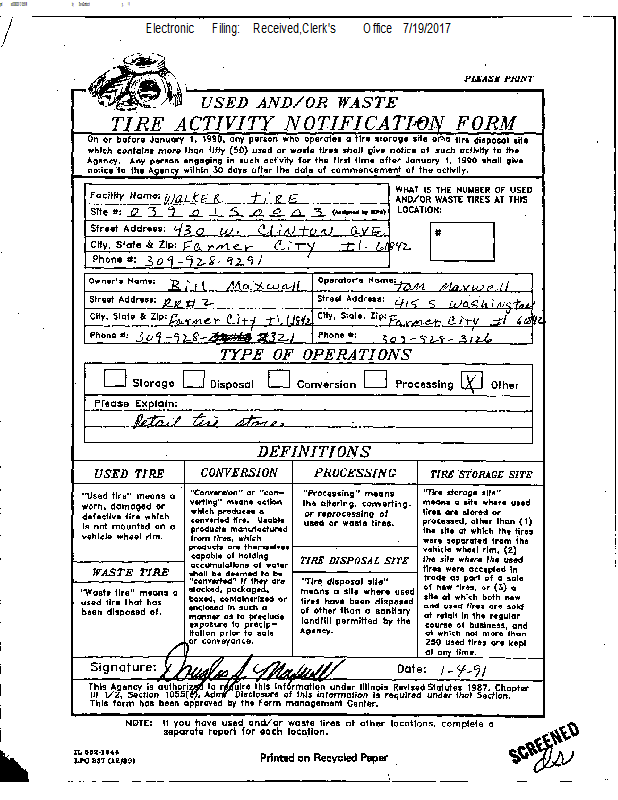 Electronic Filing: Received,Clerk's Office 7/19/2017
PLEASE PRINT
USED AND/OR WASTE
TIRE ACTIVITY NOTIFICATION FORM
On or before January 1, 1990, any person who operates a tire storage site or a tire disposal site
which contains more than fifty (50) used or waste tires shall give notice of such activity to the
Agency. Any person engaging in such activity for the first time after January 1, 1990 shall give
notice to the Agency within 30 days after the date of commencement of the activity.
Facility Name: WALKER TIRE
Site #: 0390150003 (Assigned by IEPA)
Street Address: 430 W. Clinton AVE
City, State & Zip: Farmer City Il. 61842
Phone #: 309-928-9291
WHAT IS THE NUMBER OF USED
AND/OR WASTE TIRES AT THIS
LOCATION:
#
Owner's Name: Bill Maxwell
Street Address: RR#2
City, State & Zip: Farmer City Il. 61842
Phone #: 309-928-2321
Operator's Name: Tom Maxwell
Street Address: 415 S Washington
City, State, Zip: Farmer City Il 61842
Phone #: 309-928-3126
TYPE OF OPERATIONS
Storage Disposal Conversion Processing X Other
Please Explain:
Retail tire store
DEFINITIONS
USED TIRE
"Used tire" means a
worn, damaged or
defective tire which
is not mounted on a
vehicle wheel rim.
WASTE TIRE
"Waste tire" means a
used tire that has
been disposed of.
CONVERSION
"Conversion" or "con-
verting" means action
which produces a
converted tire. Usable
products manufactured
from tires, which
products are themselves
capable of holding
accumulations of water
shall be deemed to be
"converted" if they are
stacked, packaged,
boxed, containerized or
enclosed in such a
manner as to preclude
exposure to precip-
itation prior to sale
or conveyance.
PROCESSING
"Processing" means
the altering, converting,
or reprocessing of
used or waste tires.
TIRE DISPOSAL SITE
"Tire disposal site"
means a site where used
tires have been disposed
of other than a sanitary
landfill permitted by the
Agency.
TIRE STORAGE SITE
"Tire storage site"
means a site where used
tires are stored or
processed, other than (1)
the site at which the tires
were separated from the
vehicle wheel rim, (2)
the site where the used
tires were accepted in
trade as part of a sale
of new tires, or (3) a
site at which both new
and used tires are sold
at retail in the regular
course of business, and
at which not more than
250 used tires are kept
at any time.
Signature: Douglas J. Maxwell Date: 1-4-91
This Agency is authorized to require this information under Illinois Revised Statutes 1987, Chapter
111 1/2, Section 1055(e), Adm. Disclosure of this information is required under that Section.
This form has been approved by the Form management Center.
NOTE: If you have used and/or waste tires at other locations, complete a
separate report for each location.
IL 532-1846
LPC 287 (12/89)
Printed on Recycled Paper
SCREENED
ds